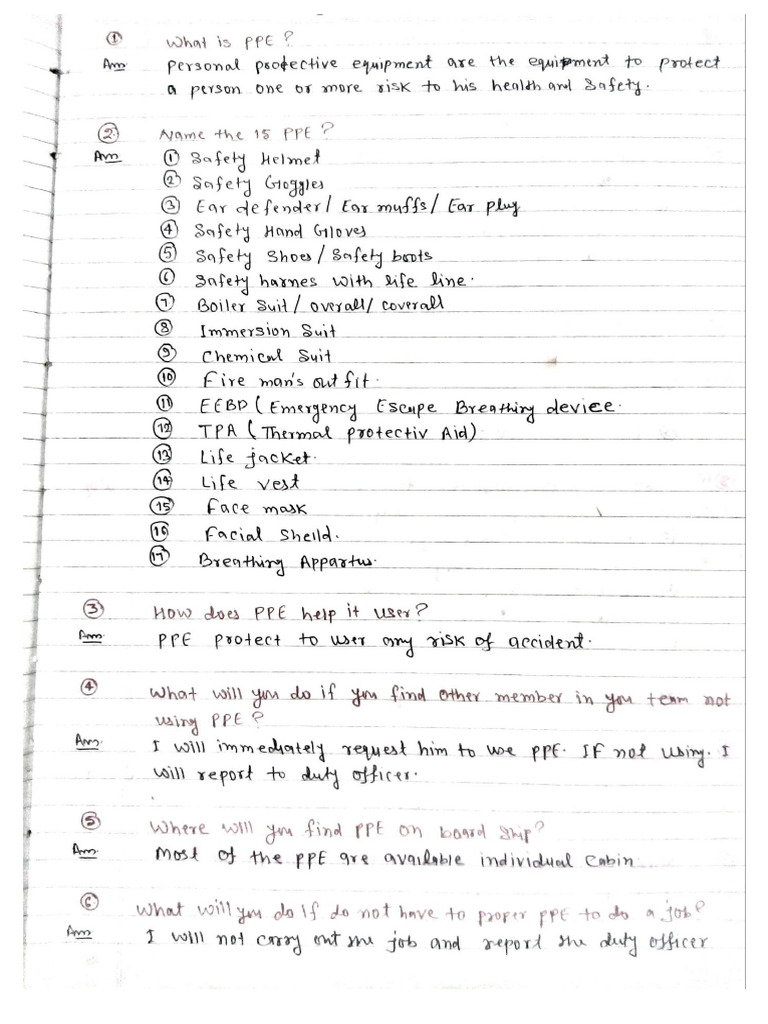 ① What is PPE ?
Ans Personal protective equipment are the equipment to protect
a person one or more risk to his health and Safety.
② Name the 15 PPE ?
Ans ① Safety Helmet
② Safety Goggles
③ Ear defender/ Ear muffs/ Ear plug
④ Safety Hand Gloves
⑤ Safety Shoes / Safety boots
⑥ Safety harnes with life line.
⑦ Boiler Suit/ overall/ coverall
⑧ Immersion Suit
⑨ Chemical Suit
⑩ Fire man's out fit.
⑪ EEBD ( Emergency Escape Breathing device.
⑫ TPA ( Thermal protectiv Aid)
⑬ Life jacket.
⑭ Life vest
⑮ Face mask
⑯ Facial Sheild.
⑰ Breathing Appartus.
③ How does PPE help it user?
Ans PPE protect to user any risk of accident.
④ What will you do if you find other member in you team not
using PPE ?
Ans I will immediately request him to use PPE. IF not using. I
will report to duty officer.
⑤ Where will you find PPE on board ship?
Ans Most of the PPE are available individual cabin
⑥ What will you do if do not have to proper PPE to do a job?
Ans I will not carry out the job and report the duty officer